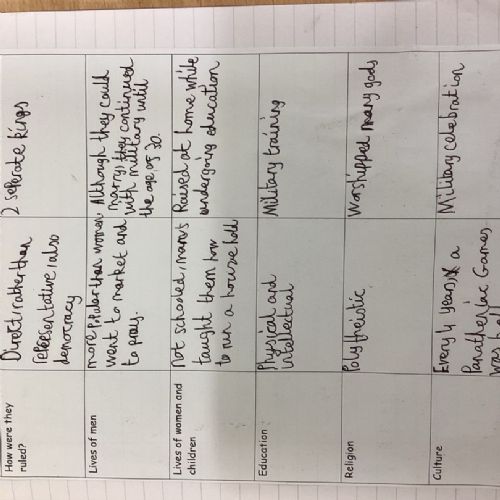 How were they
ruled?
Direct, rather than
representative, also
democracy
2 seperate kings
Lives of men
more popular than women
went to market and
to pray.
Although they could
marry, they continued
with military until
the age of 30.
Lives of women and
children
not schooled, mams
taught them how
to run a house hold
Raised at home while
undergoing education
Education
Physical and
intellectual
Military training
Religion
Polytheistic
Worshipped many gods
Culture
Every 4 years a
Panathenaic Games
was
Military celebration